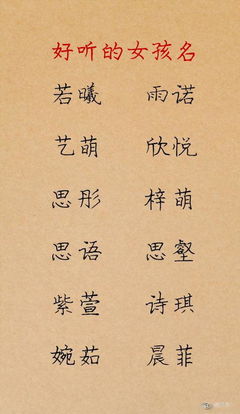 好听的女孩名
若曦 雨诺
艺萌 欣悦
思彤 梓萌
思语 思壑
紫萱 诗琪
婉茹 晨菲